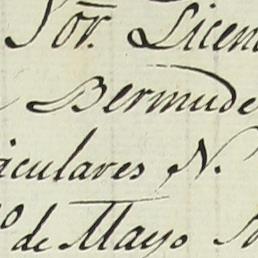 Sor. Licen
Bermude
iculares N.
1o de Mayo